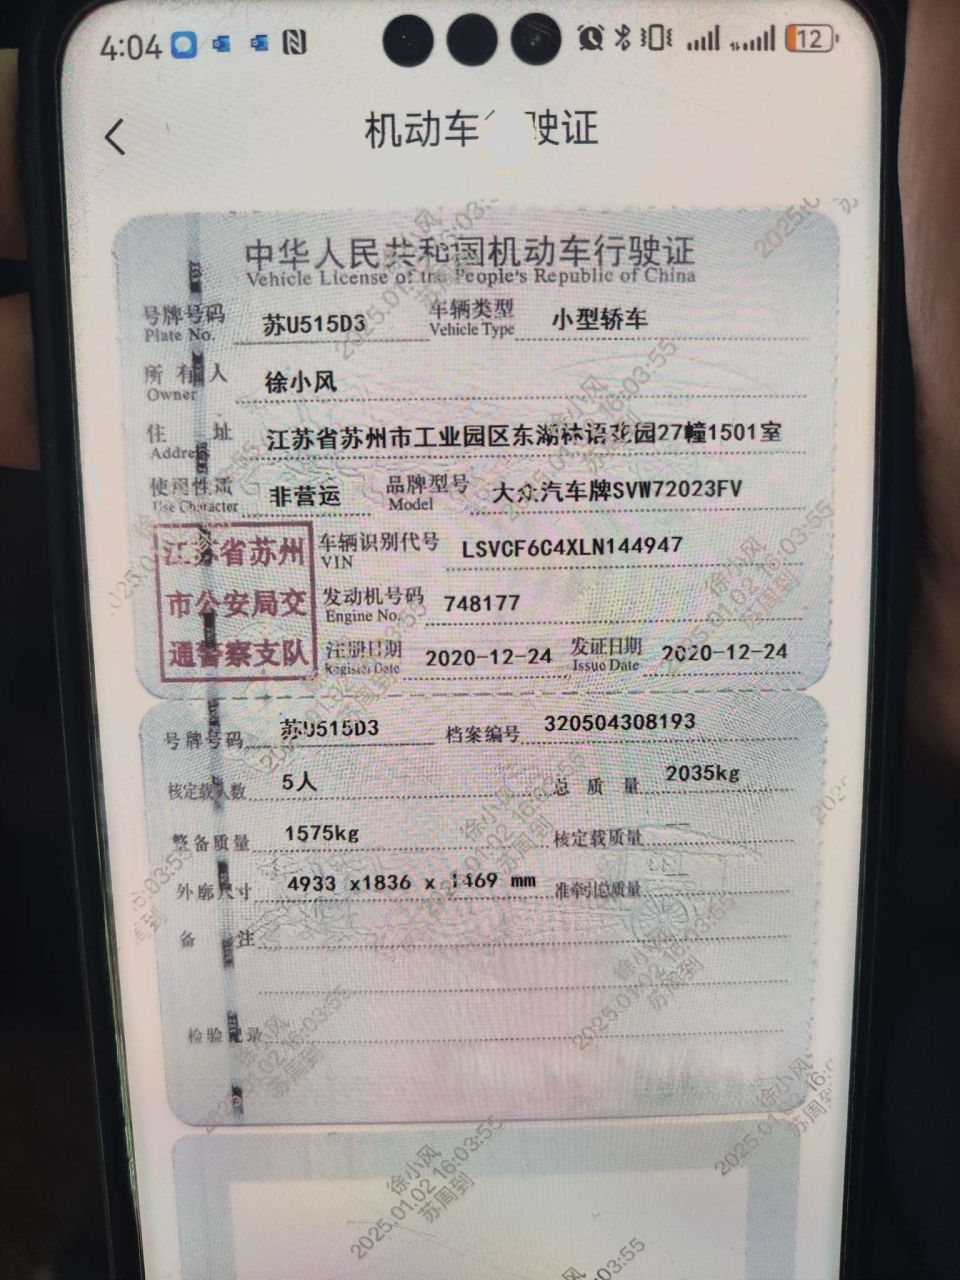 4:04 12
机动车行驶证
中华人民共和国机动车行驶证
Vehicle License of the People's Republic of China
号牌号码 苏U515D3 车辆类型 小型轿车
Plate No. Vehicle Type
所有人 徐小风
Owner
住址 江苏省苏州市工业园区东湖林语花园27幢1501室
Address
使用性质 非营运 品牌型号 大众汽车牌SVW72023FV
Use Character Model
江苏省苏州
市公安局交
通警察支队
车辆识别代号 LSVCF6C4XLN144947
VIN
发动机号码 748177
Engine No.
注册日期 2020-12-24 发证日期 2020-12-24
Register Date Issue Date
号牌号码 苏U515D3 档案编号 320504308193
核定载人数 5人 总质量 2035kg
整备质量 1575kg 核定载质量 --
外廓尺寸 4933 x1836 x 1469 mm 准牵引总质量 --
备注
检验记录
徐小风
2025.01.02 16:03:55
苏周到